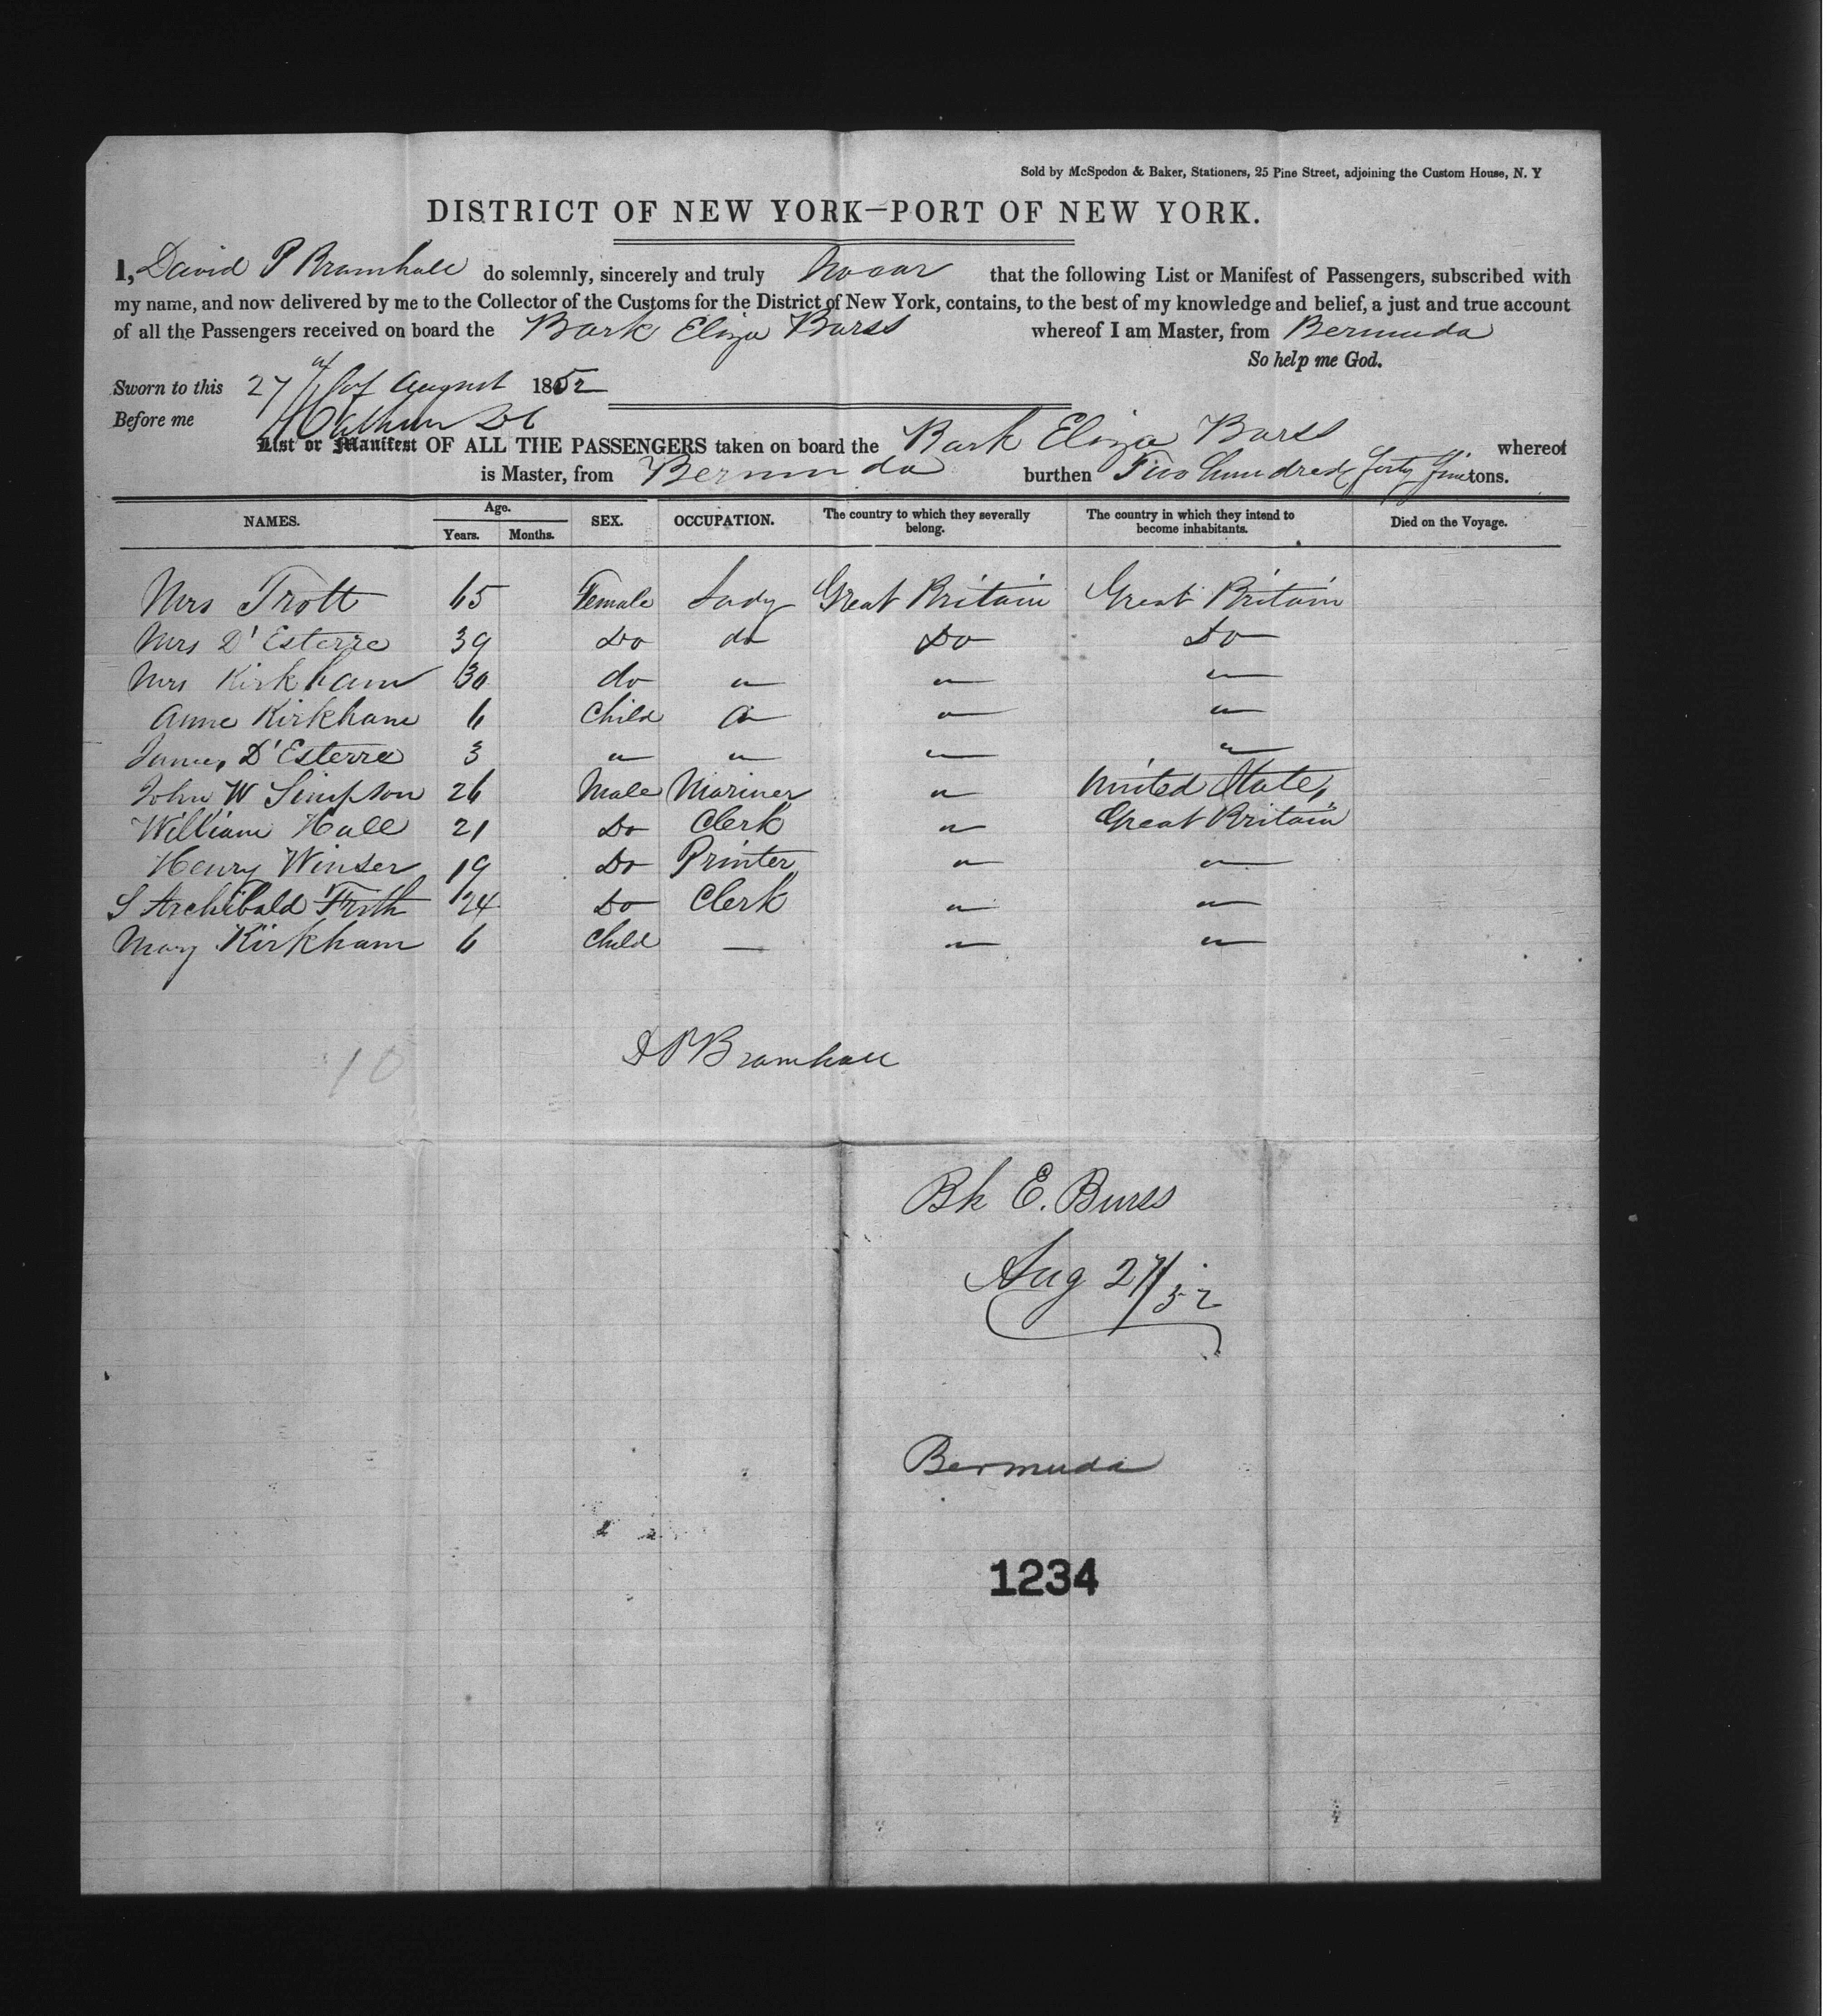 Sold by McSpedon & Baker, Stationers, 25 Pine Street, adjoining the Custom House, N. Y
DISTRICT OF NEW YORK—PORT OF NEW YORK.
I, David P Bramhall do solemnly, sincerely and truly swear that the following List or Manifest of Passengers, subscribed with
my name, and now delivered by me to the Collector of the Customs for the District of New York, contains, to the best of my knowledge and belief, a just and true account
of all the Passengers received on board the Bark Eliza Barss whereof I am Master, from Bermuda
So help me God.
Sworn to this 27 of August 1852
Before me
List or Manifest OF ALL THE PASSENGERS taken on board the Bark Eliza Barss whereof
is Master, from Bermuda burthen Two hundred forty five tons.
NAMES. Age. SEX. OCCUPATION. The country to which they severally belong. The country in which they intend to become inhabitants. Died on the Voyage.
Years. Months.
Mrs Trott 65 Female Lady Great Britain Great Britain
Mrs D'Esterre 39 Do do Do Do
Mrs Kirkham 30 do " " "
Anne Kirkham 6 Child " " "
James D'Esterre 3 " " " "
John W Simpson 26 Male Mariner " United States
William Hall 21 Do Clerk " Great Britain
Henry Winser 19 Do Printer " "
S Archibald Frith 24 Do Clerk " "
Mary Kirkham 6 Child — " "
10
D P Bramhall
Bk E. Burss
Aug 27/52
Bermuda
1234